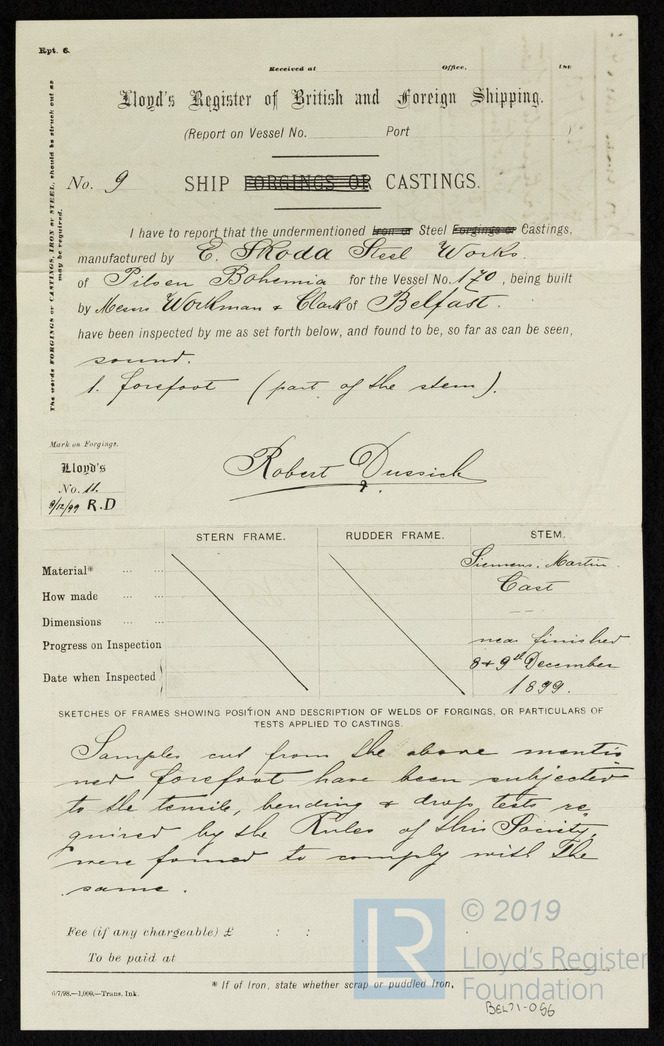 Rpt. 6.
Received at Office, 189
Lloyd's Register of British and Foreign Shipping.
(Report on Vessel No. Port )
No. 9 SHIP FORGINGS OR CASTINGS.
The words FORGINGS or CASTINGS, IRON or STEEL, should be struck out as may be required.
I have to report that the undermentioned Iron or Steel Forgings or Castings,
manufactured by E. Skoda Steel Works
of Pilsen Bohemia for the Vessel No. 170, being built
by Messrs Workman & Clark of Belfast.
have been inspected by me as set forth below, and found to be, so far as can be seen,
sound.
1. forefoot (part of the stem).
Mark on Forgings.
Lloyd's
No. 11.
9/12/99 R.D
Robert Dussick
STERN FRAME. RUDDER FRAME. STEM.
Material* ... ... Siemens. Martin.
How made ... ... Cast
Dimensions ... ...
Progress on Inspection near finished
Date when Inspected 8 & 9th December
1899.
SKETCHES OF FRAMES SHOWING POSITION AND DESCRIPTION OF WELDS OF FORGINGS, OR PARTICULARS OF
TESTS APPLIED TO CASTINGS.
Samples cut from the above mentio
ned forefoot have been subjected
to the tensile, bending & drop tests re
quired by the Rules of this Society,
were found to comply with the
same.
Fee (if any chargeable) £ : :
To be paid at
* If of Iron, state whether scrap or puddled Iron,
6/7/98.—1,000.—Trans. Ink.
LR
© 2019
Lloyd's Register
Foundation
BEL71-056